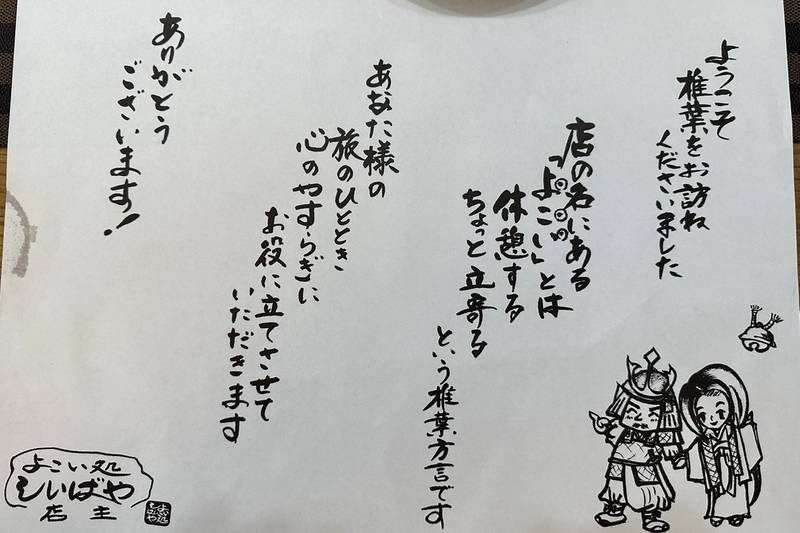 ようこそ
椎葉をお訪ね
くださいました
店の名にある
「よこい」とは
休憩する
ちょっと立寄る
という椎葉方言です
あなた様の
旅のひととき
心のやすらぎに
お役に立てさせて
いただきます
ありがとう
ございます!
よこい処
しいばや
店主